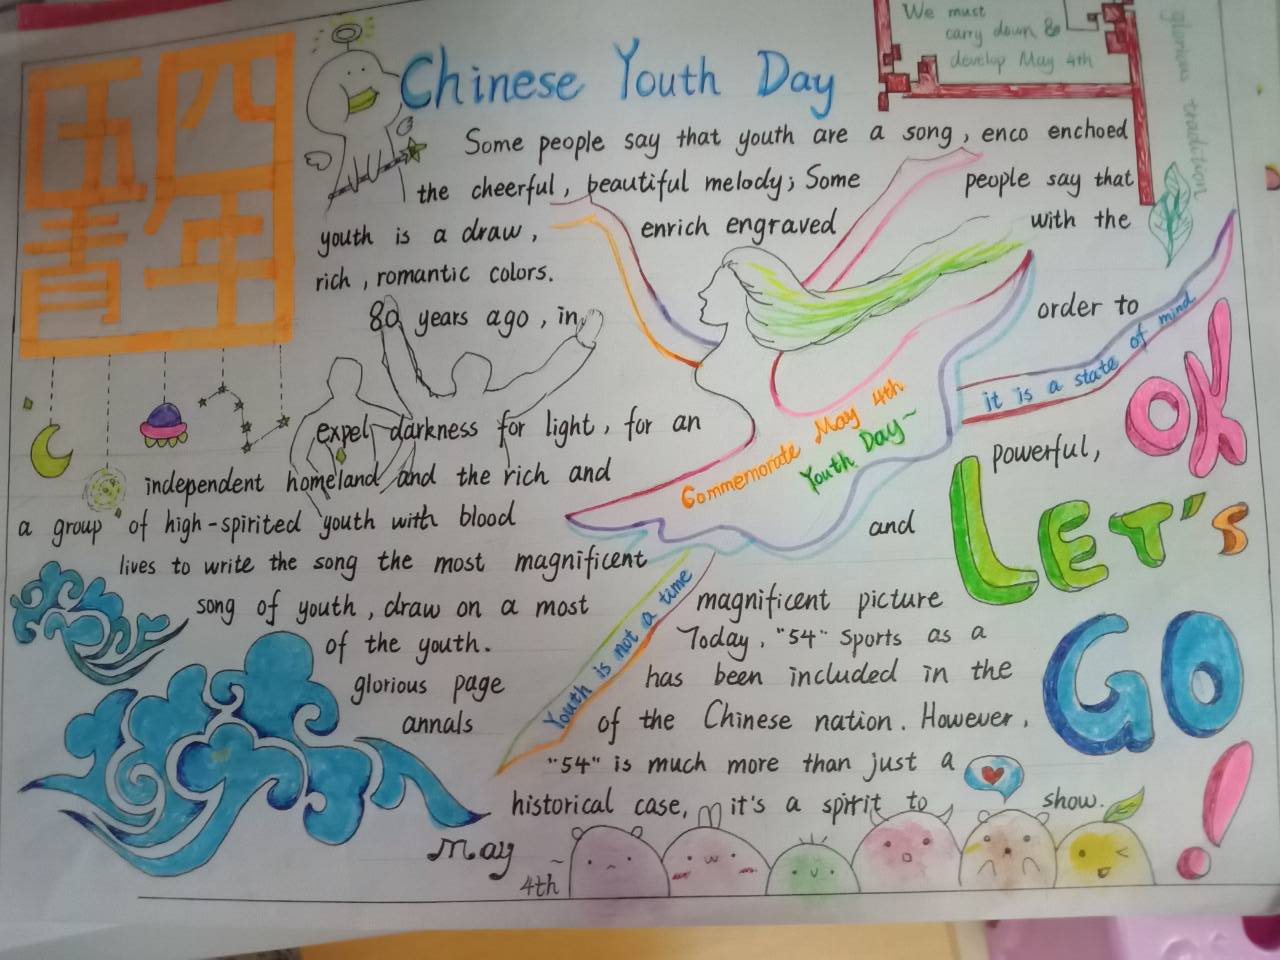 五四
青年
Chinese Youth Day
We must
carry down &
develop May 4th
glorious tradition
Some people say that youth are a song, enco enchoed
the cheerful, beautiful melody; Some people say that
youth is a draw, enrich engraved with the
rich, romantic colors.
80 years ago, in order to
expel darkness for light, for an powerful,
independent homeland and the rich and
a group of high-spirited youth with blood and
lives to write the song the most magnificent
song of youth, draw on a most magnificent picture
of the youth. Today, "54" Sports as a
glorious page has been included in the
annals of the Chinese nation. However,
"54" is much more than just a
historical case, it's a spirit to show.
Commemorate May 4th
Youth Day~
it is a state of mind
Youth is not a time
OK
LET'S
GO
!
May
~
4th